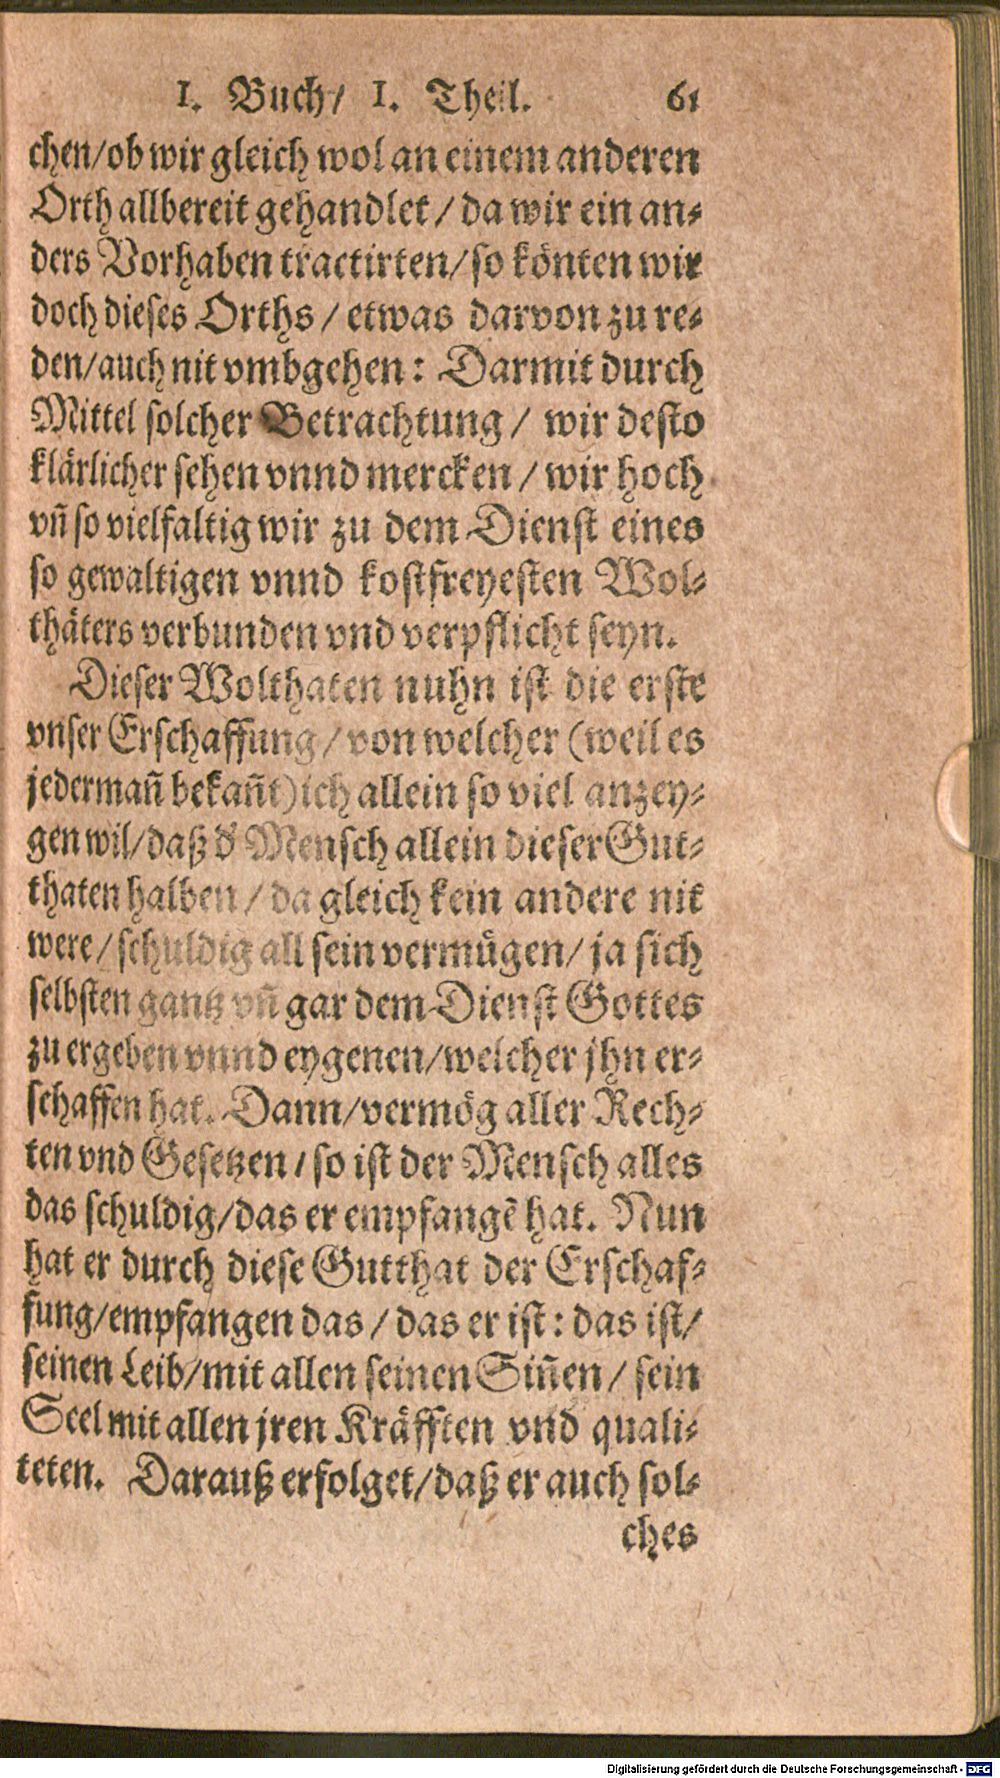 1. Buch/ 1. Theil. 61
chen/ob wir gleich wol an einem anderen
Orth allbereit gehandlet/da wir ein an⸗
ders Vorhaben tractirten/so könten wir
doch dieses Orths/etwas darvon zu re⸗
den/auch nit vmbgehen: Darmit durch
Mittel solcher Betrachtung/ wir desto
klärlicher sehen vnnd mercken/wir hoch
vñ so vielfaltig wir zu dem Dienst eines
so gewaltigen vnnd kostfreyesten Wol⸗
thäters verbunden vnd verpflicht seyn.
Dieser Wolthaten nuhn ist die erste
vnser Erschaffung/von welcher (weil es
jedermañ bekañt) ich allein so viel anzey⸗
gen wil/daß d' Mensch allein dieser Gut⸗
thaten halben/da gleich kein andere nit
were/schuldig all sein vermügen/ja sich
selbsten gantz vñ gar dem Dienst Gottes
zu ergeben vnnd eygenen/welcher jhn er⸗
schaffen hat. Dann/vermög aller Rech⸗
ten vnd Gesetzen/so ist der Mensch alles
das schuldig/das er empfangẽ hat. Nun
hat er durch diese Gutthat der Erschaf⸗
fung/empfangen das/das er ist: das ist/
seinen Leib/mit allen seinen Siñen/ sein
Seel mit allen jren Kräfften vnd quali⸗
teten. Darauß erfolget/daß er auch sol⸗
ches
Digitalisierung gefördert durch die Deutsche Forschungsgemeinschaft - DFG